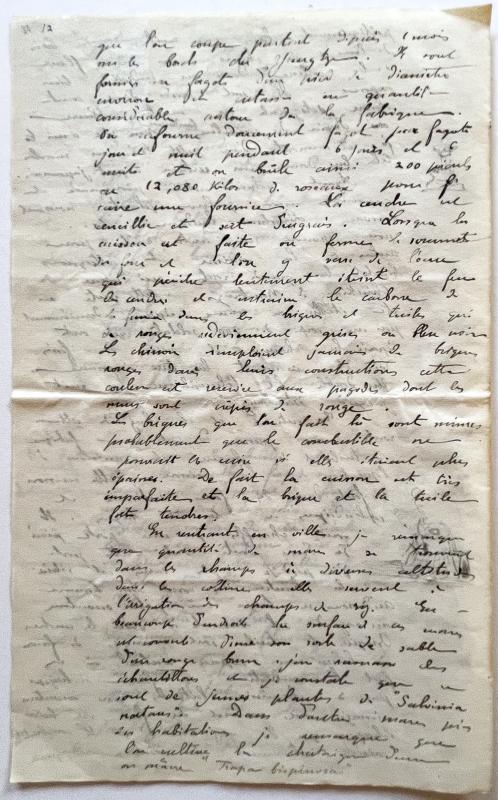 12
que l'on coupe partout depuis 1 mois
sur les bords du Yangtze. Ils sont
formés en fagots d'un pied de diamètre
environ et entassés en quantité
considérable autour de la fabrique.
On enfourne doucement fagot par fagots
jour et nuit pendant 6 jours et 6
nuits et on brûle ainsi 200 piculs
ou 12,080 Kilos de roseaux pour
cuire une fournée. La cendre est
recueillie et sert d'engrais. Lorsque la
cuisson est faite on ferme le sommet
du four et l'on y verse de l'eau
qui pénètre lentement éteint le feu
des cendres et entraine le carbone de
la fumée dans les briques et tuiles qui
de rouge redeviennent grises ou bleu noir
Les chinois n'emploient jamais de briques
rouges dans leurs constructions cette
couleur est réservée aux pagodes dont les
murs sont crépis de rouge.
Les briques que l'on fait là sont minces
probablement que le combustible ne
pourrait les cuire si elles étaient plus
épaisses. De fait la cuisson est très
imparfaite et la brique et la tuile
fort tendres.
En rentrant en ville je remarque
que quantité de mares se trouvent
dans les champs à diverses altitudes
dans les collines elles servent à
l'irrigation des champs de riz. En
beaucoup d'endroits la surface de ces mares
est couverte d'une sorte de sable
d'un rouge brun j'en ramasse des
échantillons et je constate que ce
sont de jeunes plantes de "Salvinia
natans". Dans d'autres mares près
des habitations je remarque que
l'on cultive la chataigne d'eau
ou mâcre "Trapa bispinosa